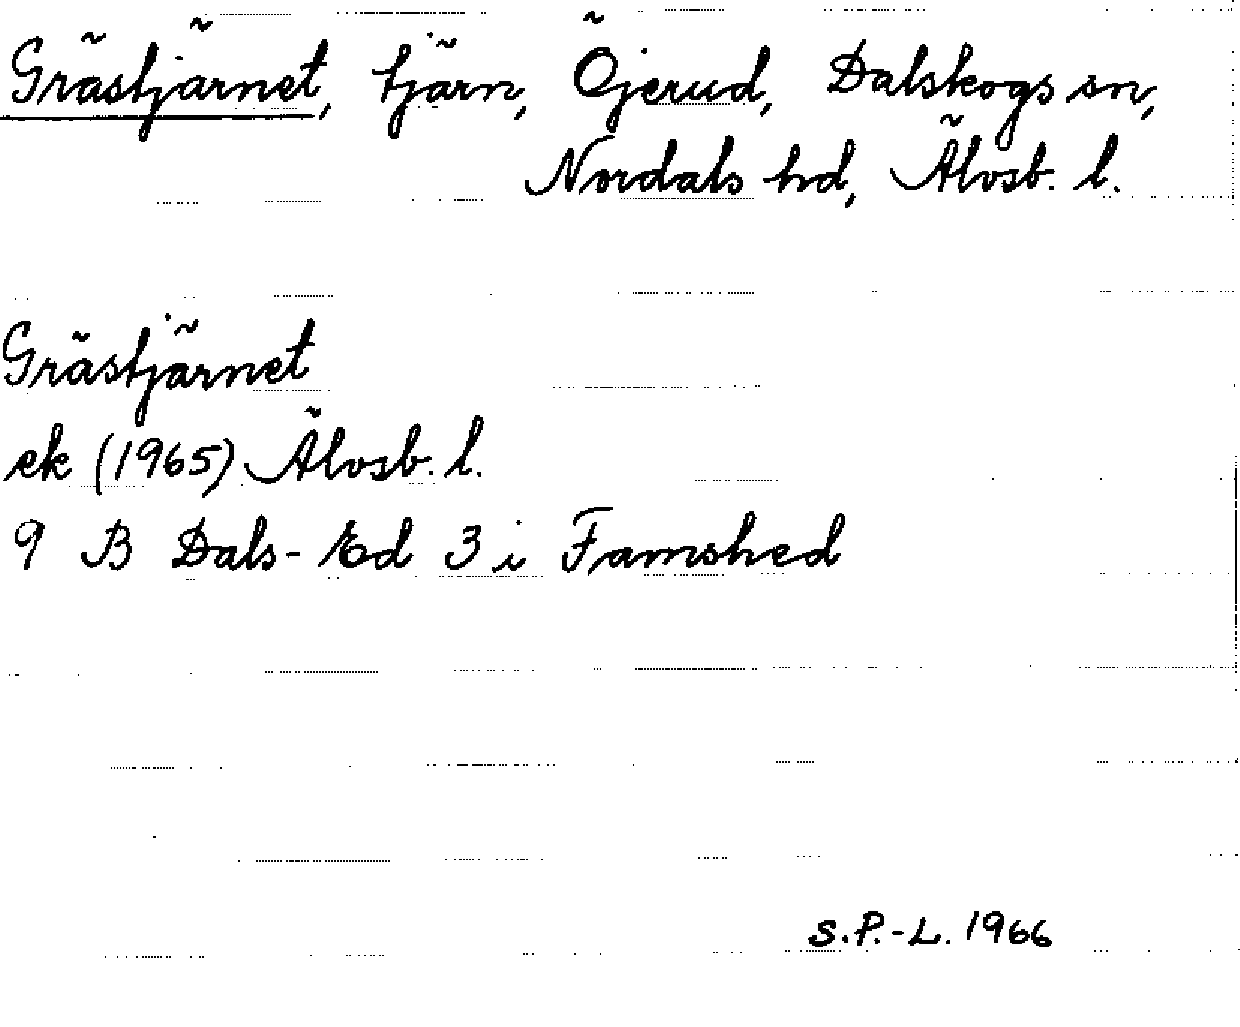 Grästjärnet, tjärn, Öjerud, Dalskogs sn,
Nordals hd, Älvsb. l.
Grästjärnet
ek (1965) Älvsb. l.
9 B Dals-Ed 3 i Famshed
S.P.-L. 1966